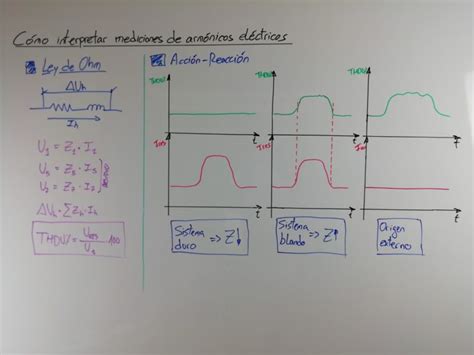 Cómo interpretar mediciones de armónicos eléctricos
Ley de Ohm
ΔUh
Ih
U1 = Z1 · I1
U5 = Z5 · I5
U7 = Z7 · I7
ΔUh = ΣZh·Ih
THDU% = Ures / U1 · 100
Acción-Reacción
THDU
t
Ires
t
THDU
t
Ires
t
THDU
t
Ires
t
Sistema
duro => Z↓
Sistema
blando => Z↑
Origen
externo